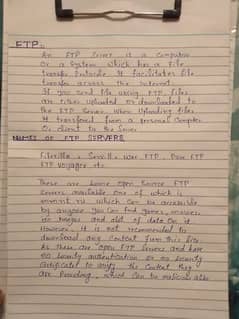 FTP:-
An FTP Server is a Computer
Or a System which has a File
transfer Protocole. It facilitates file
transfer across the internet.
If you send file using FTP, files
are either uploaded or downloaded to
the FTP Server. When Uploading files
it transfered from a personal Computer
Or client to the Server
NAMES OF FTP SERVERS
Filezilla, Servill, war FTP, Pure FTP
FTP Voyager etc.
These are some open source FTP
Servers available, one of which is
which can be accessible
by anyone you can find games, movies
and alot of data on it
However, it is not recommended to
download any content from this site.
As these are open FTP Servers and have
no security authentication or no security
certificates to verify the content they
are Providing, which can be malicious also